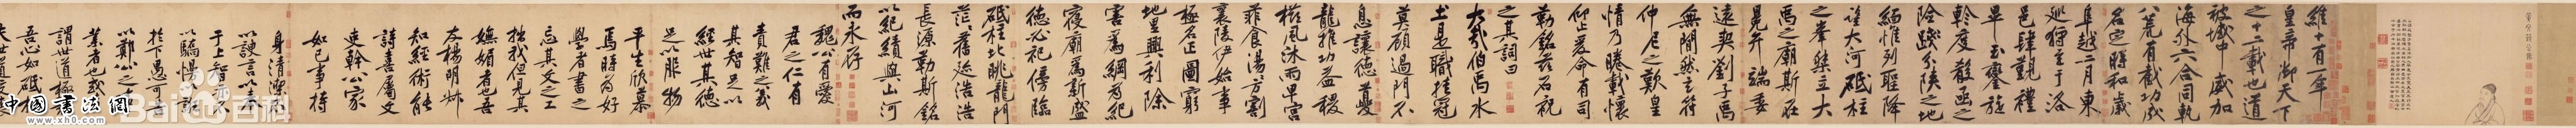 維十有一年
皇帝御天下
之十二載也道
被域中威加
海外六合同軌
八荒有截功成
名定時和歲
阜越二月東
巡狩至于洛
邑肆觀禮
畢玉鑾旋
軫度殽函之
險踐分陝之地
緬惟列聖降
望大河砥柱
之峯桀立大
禹之廟斯在
冕弁端委
遠契劉子禹
無間然玄符
仲尼之歎皇
情乃睠載懷
仰止爰命有司
勒銘茲石祝
之其詞曰
大哉伯禹水
土是職挂冠
莫顧過門不
息讓德夔
龍推功益稷
櫛風沐雨卑宮
菲食湯湯方割
襄陵伊始事
極名正圖窮
地里興利除
害為綱為紀
寢廟為新盛
德必祀傍臨
砥柱北眺龍門
茫茫舊迹浩浩
長源勒斯銘
以紀績與山河
而永存
魏公有愛
君之仁有
責難之義
其智足以
經世其德
足以服物
平生欣慕
焉時為好
學者書之
忘其文之工
拙我但見其
嫵媚者也吾
友楊明叔
知經術能
詩喜屬文
吏幹公家
如己事持
身清潔不
以諛言以奉
于上智亦不
以驕慢以誑
於下愚可告
以鄭公之事
業者也或者
謂世道極頹
吾心如砥柱
夫世道交喪
中國書法網
www.xh0.com
Baidu百科